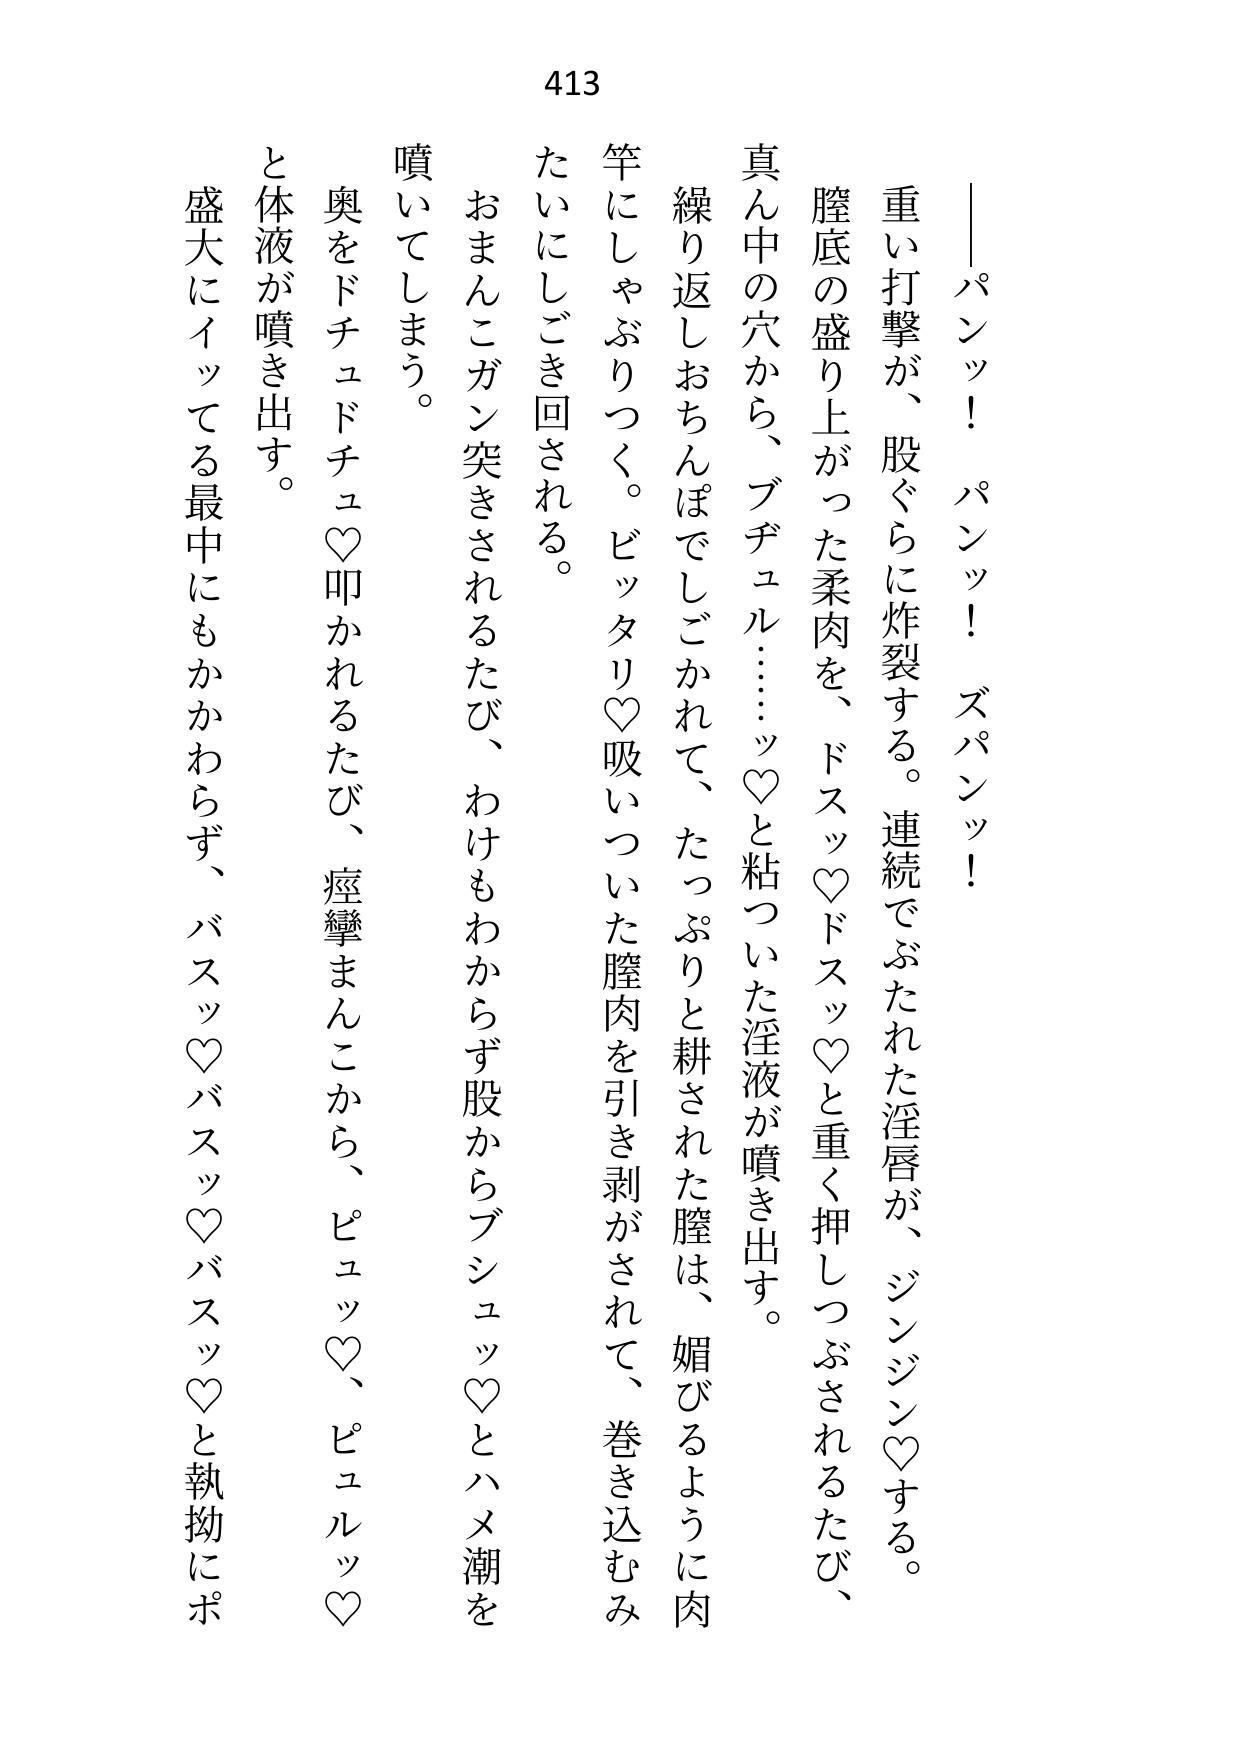 413
――パンッ！　パンッ！　ズパンッ！
重い打撃が、股ぐらに炸裂する。連続でぶたれた淫唇が、ジンジン♡する。
膣底の盛り上がった柔肉を、ドスッ♡ドスッ♡と重く押しつぶされるたび、
真ん中の穴から、ブヂュル……ッ♡と粘ついた淫液が噴き出す。
繰り返しおちんぽでしごかれて、たっぷりと耕された膣は、媚びるように肉
竿にしゃぶりつく。ビッタリ♡吸いついた膣肉を引き剥がされて、巻き込むみ
たいにしごき回される。
おまんこガン突きされるたび、わけもわからず股からブシュッ♡とハメ潮を
噴いてしまう。
奥をドチュドチュ♡叩かれるたび、痙攣まんこから、ピュッ♡、ピュルッ♡
と体液が噴き出す。
盛大にイッてる最中にもかかわらず、バスッ♡バスッ♡バスッ♡と執拗にポ